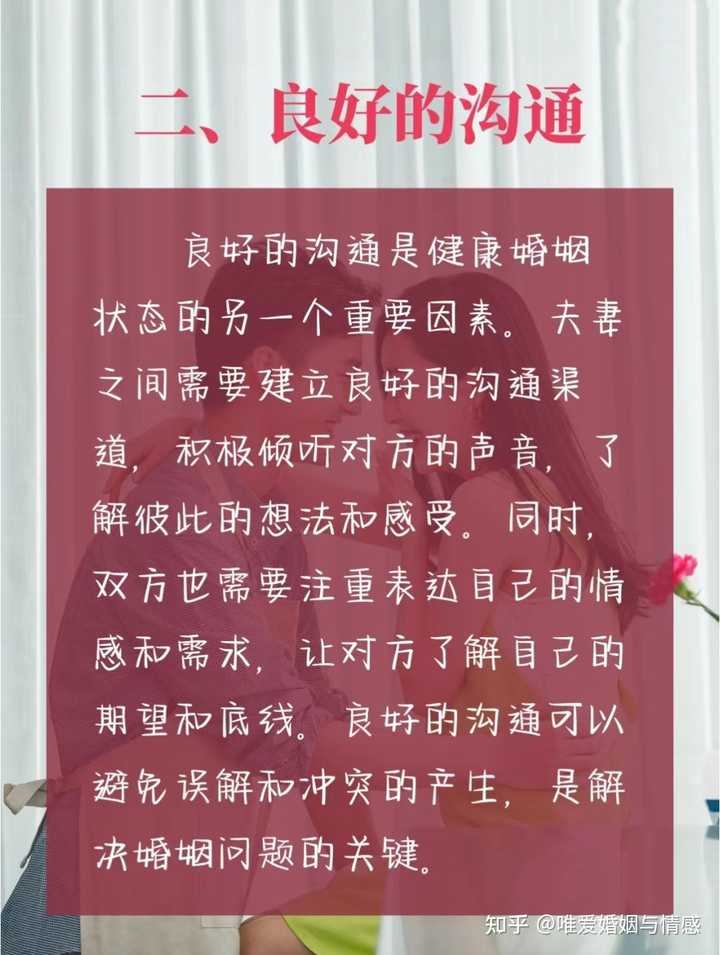 二、良好的沟通
良好的沟通是健康婚姻
状态的另一个重要因素。夫妻
之间需要建立良好的沟通渠
道，积极倾听对方的声音，了
解彼此的想法和感受。同时，
双方也需要注重表达自己的情
感和需求，让对方了解自己的
期望和底线。良好的沟通可以
避免误解和冲突的产生，是解
决婚姻问题的关键。
知乎 @唯爱婚姻与情感